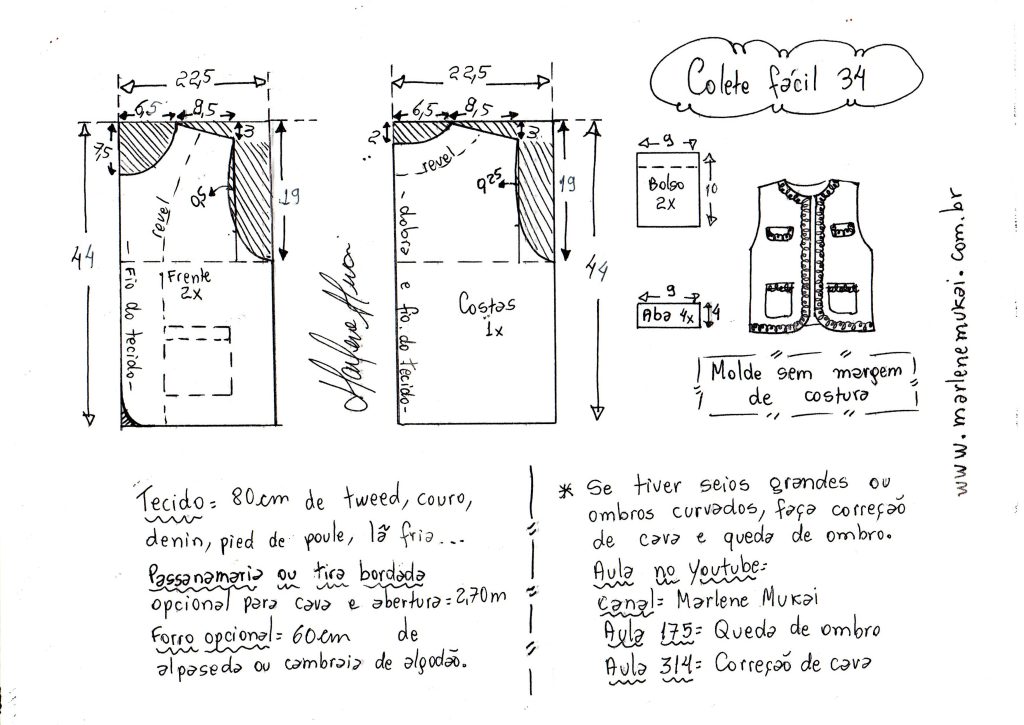 Colete fácil 34
22,5
6,5 8,5
7,5
3
19
44
0,25
revel
Fio do tecido
Frente
2x
22,5
6,5 8,5
2
3
19
44
0,25
revel
dobra e fio do tecido
Costas
1x
9
Bolso
2x
10
9
Aba 4x
4
Molde sem margem
de costura
www.marlenemukai.com.br
Tecido= 80cm de tweed, couro,
denin, pied de poule, lã fria...
Passanamaria ou tira bordada
opcional para cava e abertura=2,70m
Forro opcional= 60cm de
alpaseda ou cambraia de algodão.
* Se tiver seios grandes ou
ombros curvados, faça correção
de cava e queda de ombro.
Aula no Youtube=
canal= Marlene Mukai
Aula 175= Queda de ombro
Aula 314= Correção de cava